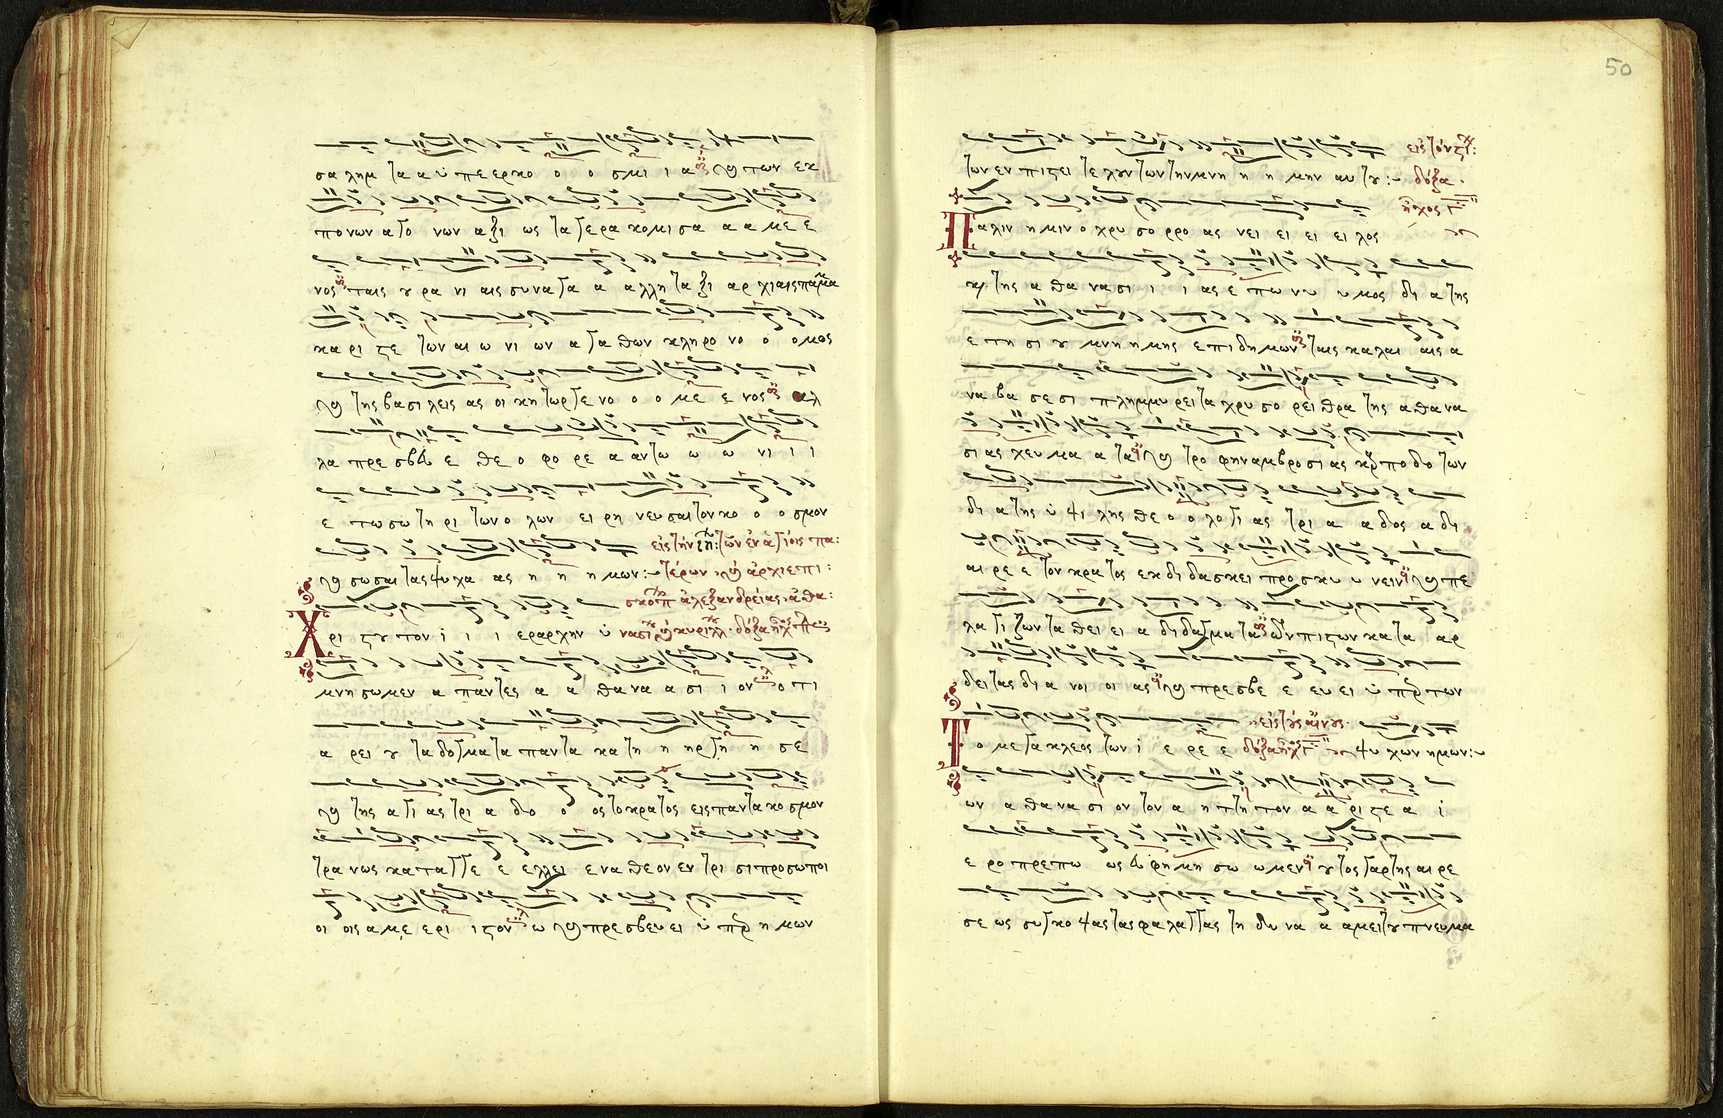 σα λημ τα α ὑ πε ερ κο ο ο σμι ι α και των εκ
πο νων α γο νων α ξι ως τα γε ρα κο μι σα α α με ε
νος ταις ου ρα νι αις συν α γα α α λλη τα ξι αρ χι αις παμμα
κα ρι στε των αι ω νι ων α γα θων κλη ρο νο ο ο μος
και της βα σι λει ας οι κη τωρ γε νο ο ο με ε νος αλ
λα πρε σβευ ε θε ο φο ρε α αν τω ω ω νι ι ι
ε πως σω τη ρι των ο λων ει ρη νευ σαι τον κο ο ο σμον
εἰς τὴν ιη: τῶν ἐν ἁγίοις πα:
και σω σαι τας ψυ χα ας η η η μων: τέρων και ἀρχιεπι:
σκόπ ἀλεξανδρείας ἀθα:
Χρι στου τον ι ι ι ε ραρ χην ὑ νασι και κυρίλλ δόξα ἦχ
μνη σω μεν α παν τες α α θα να α σι ι ον ο τι
α ρει ου τα δογ μα τα παν τα κα τη η ηρ γη η σε
και της α γι ας τρι α δο ο ος το κρα τος εις παν τα κο σμον
τρα νως κα ταγ γε ε ελ λει ε να θε ον εν τρι σι προ σω ποι
οι οις α με ε ρι ι στον ω και πρε σβευ ει ὑ περ η μων
εἰς τὸν στίχ:
των εν πι στει τε λουν των την μνη η η μην αυ του: δόξα
ἦχος
Πα λιν η μιν ο χρυ σο ρρο ας νει ει ει ει λος
και της α θα να σι ι ι ας ε πω νυ υ μος δι α της
ε τη σι ου μνη η μης ε πι δη μων ταις κα λαι αις α
να βα σε σι πλημ μυ ρει τα χρυ σο ρει θρα της α θα να
σι ας χευ μα α τα και τρο φην αμ βρο σι ας και πο δω των
δι α της ὑ ψι λης θε ο ο λο γι ας τρι α α δος α δι
αι ρε ε τον κρα τος εκ δι δα σκει προ σκυ υ νειν και πε
λα γι ζον τα θει ει α δι δαγ μα τα των πι στων κα τα αρ
δει τας δι α νοι οι ας και πρε σβε ε ευ ει ὑ περ των
εἰς τοὺς αἴνους
Το με γα κλε ος των ι ε ρε ε δόξα ἦχ ψυ χων ημων:
ων α θα να σι ον τον α η τη τον α α ρι στε α ι
ε ρο πρε πω ως ευ φη μη σω ω μεν ου τος γαρ της αι ρε
σε ως συγ κο ψας τας φα λαγ γας τη δυ να α α μει του πνευ μα
50